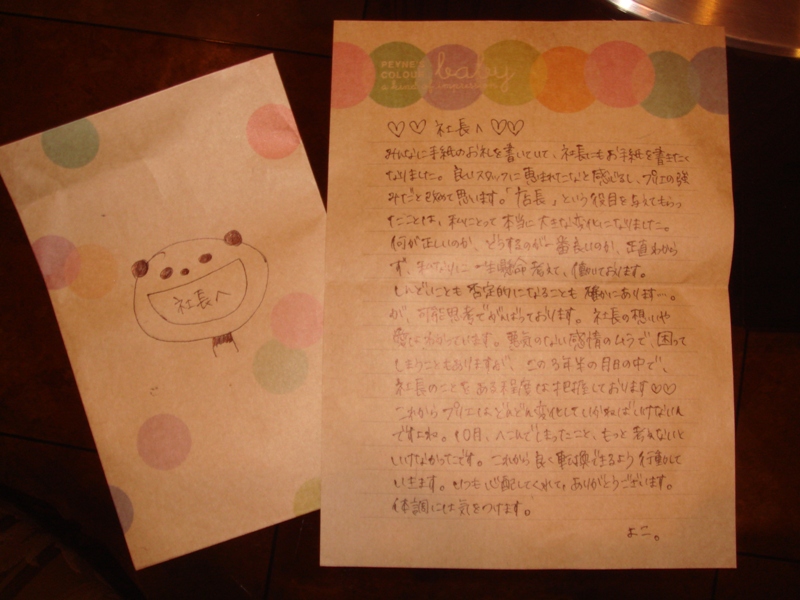 社長へ
PEYNE'S
COLOUR
baby
♡♡ 社長へ ♡♡
みんなに手紙のお礼を書いていて、社長にもお手紙を書きたく
なりました。良いスタッフに恵まれたなと感じるし、プリエの強
みだと改めて思います。「店長」という役目を与えてもらっ
たことは、私にとって本当に大きな変化になりました。
何が正しいのか、どうするのが一番良いのか、正直わから
ず、私なりに一生懸命考えて、働いております。
しんどいことも否定的になることも確かにありますー。
が、可能思考でがんばっております。社長の想いや
愛はわかっています。悪気のない感情のムラで、困って
しまうこともありますが、この3年半の月日の中で、
社長のことをある程度は把握しております♡♡
これからプリエはどんどん変化していかねばいけないん
ですよね。10月、へこんでしまったこと、もっと考えないと
いけなかったです。これから良く転換できるよう行動して
いきます。いつも心配してくれて、ありがとうございます。
体調には気をつけます。
よこ。